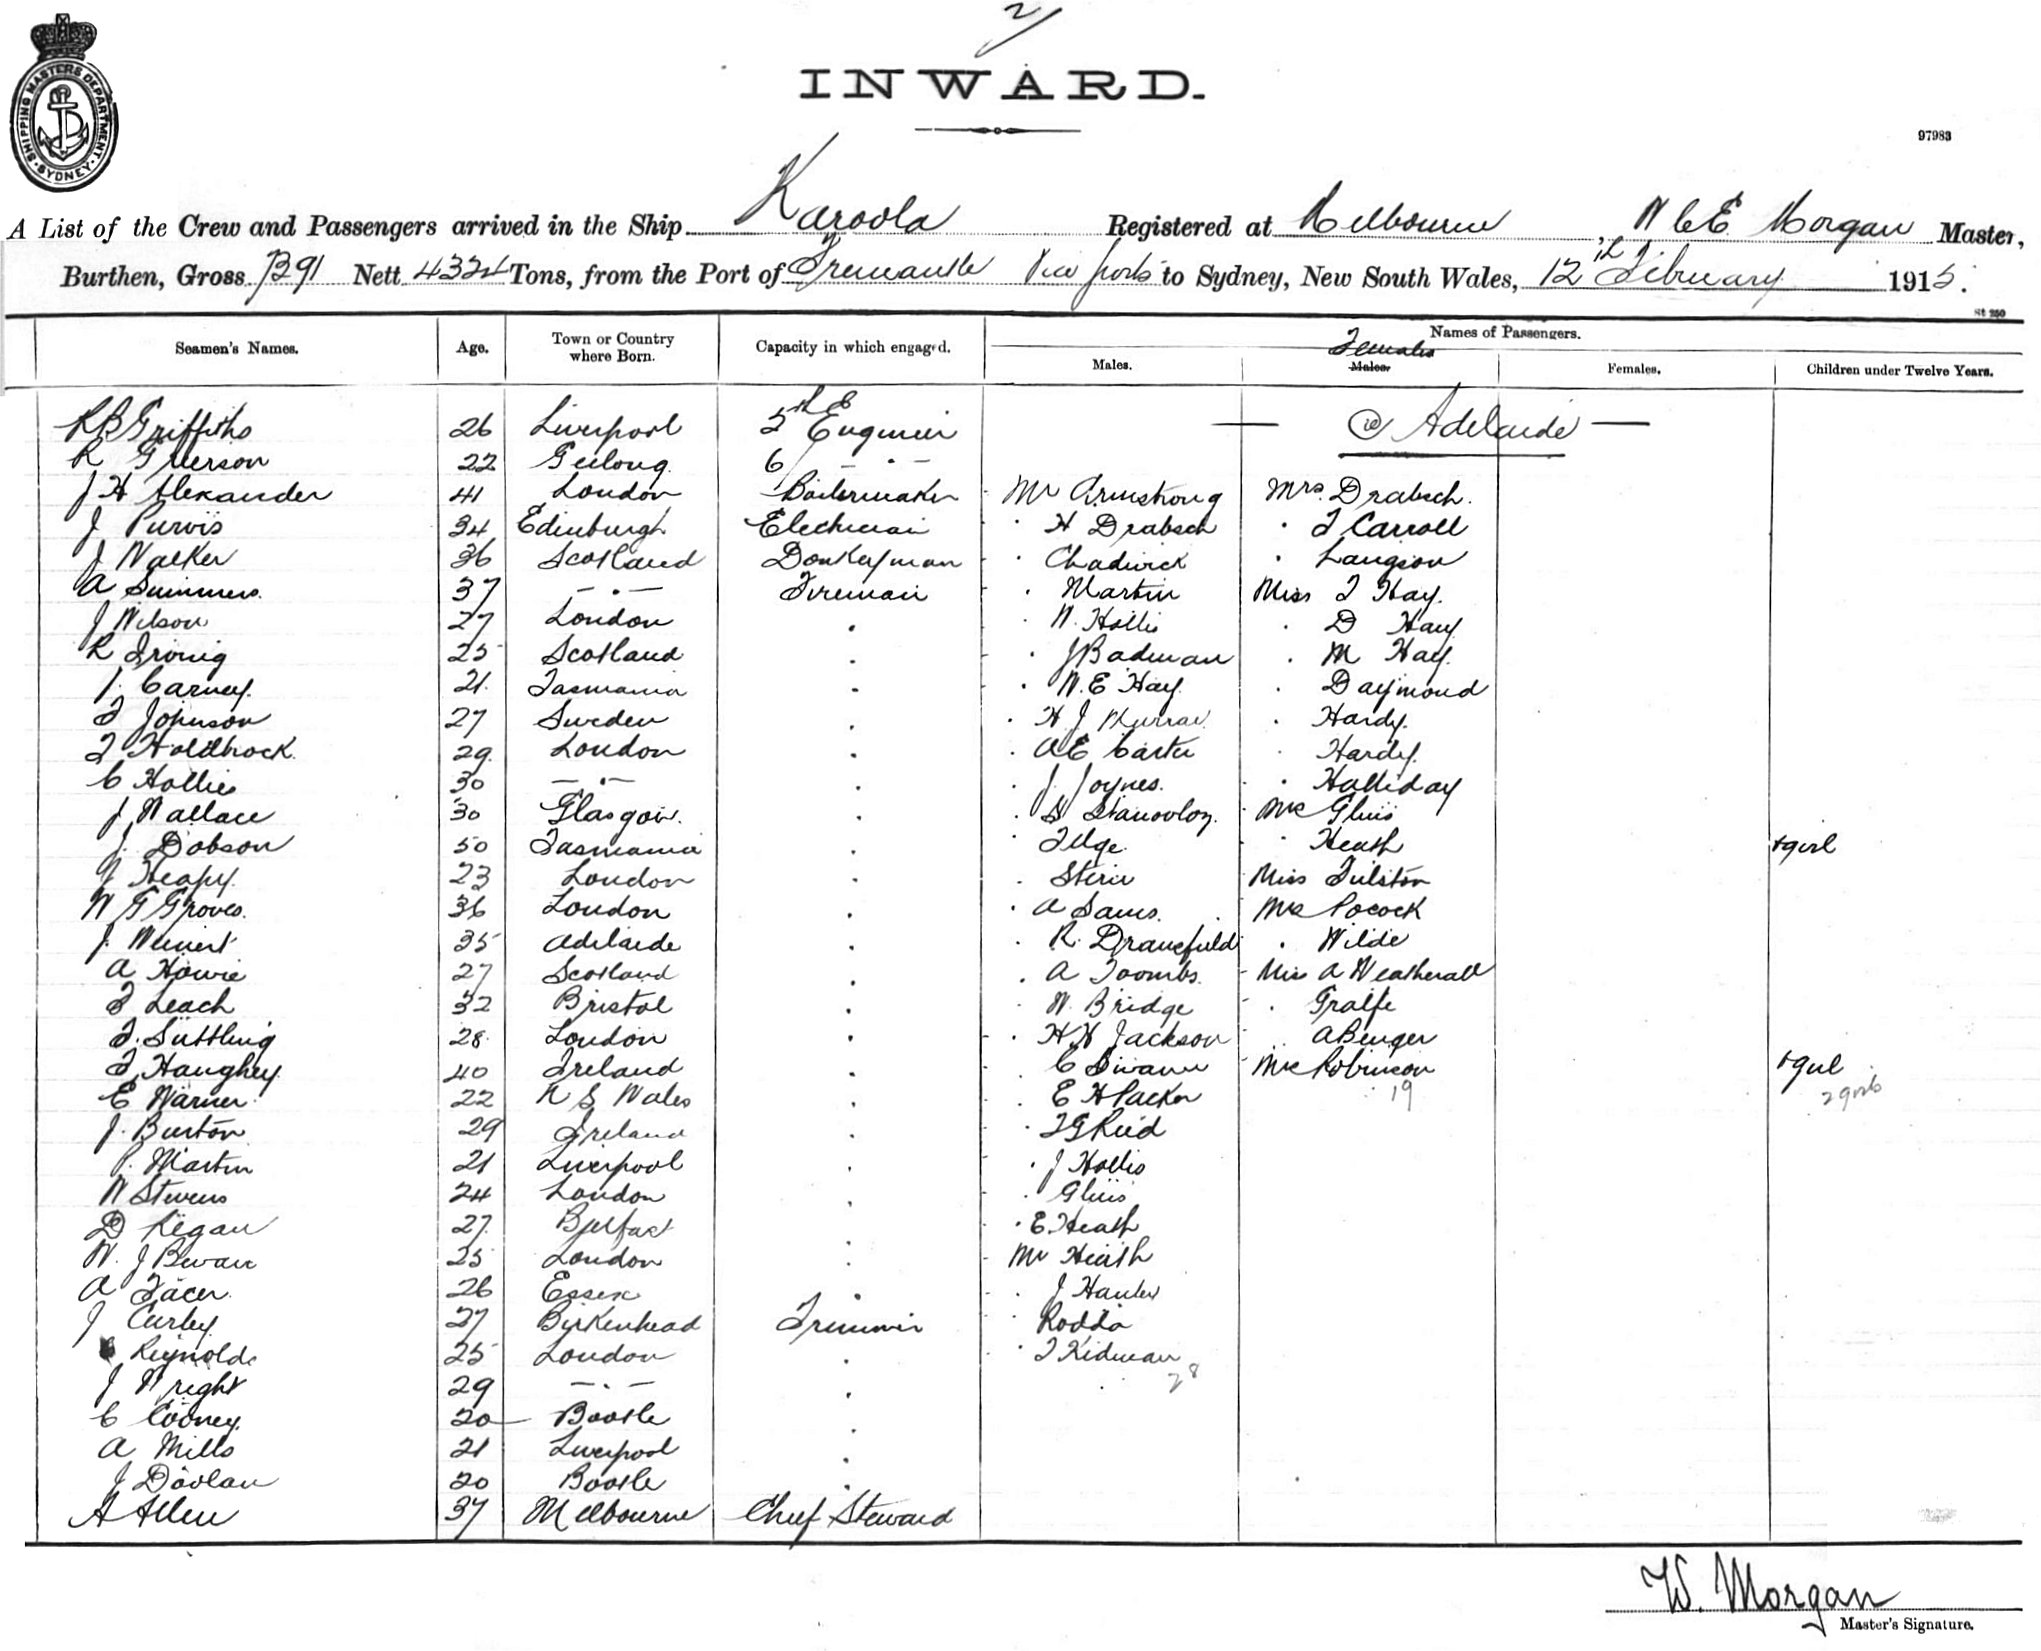 2/
INWARD.
SHIPPING MASTERS DEPARTMENT. SYDNEY.
97983
A List of the Crew and Passengers arrived in the Ship Karoola Registered at Melbourne, W C E Morgan Master,
Burthen, Gross 7391 Nett 4324 Tons, from the Port of Fremantle Via ports to Sydney, New South Wales, 12th February 1915.
St 250
Seamen's Names. Age. Town or Country where Born. Capacity in which engaged. Names of Passengers.
Males. Females Males. Females. Children under Twelve Years.
R B Griffiths 26 Liverpool 5th E Engineer — @ Adelaide —
R Grierson 22 Geelong 6 — " —
J H Alexander 41 London Boilermaker Mr Armstrong Mrs Drabsch.
J Purvis 34 Edinburgh Electrician " H Drabsch " F Carroll
J Walker 36 Scotland Donkeyman " Chadwick " Langion
A Summers. 37 — " — Fireman " Martin Miss F Hay.
J Wilson 27 London " " W. Hollis " D Hay
R Irving 25 Scotland " " J Badman " M Hay.
J. Carney. 21. Tasmania " " W. E Hay. " Daymond
F Johnson 27 Sweden " " H. J Murray. " Hardy.
F Holdbrock. 29. London " " A E Carter Hardy.
C Hollies 30 — " — " " J. Joynes. " Halliday
J Wallace 30 Glasgow. " " S Stanovloy. Mrs Gluis
J. Dobson 50 Tasmania " " Filge " Heath + girl
J Heapy. 23 London " " Stein Miss Tulston
W G Groves. 36 London " " A Sams. Mrs Pocock
J. Weinert 35 Adelaide " " R. Dransfield " Wilde
A Howie 27 Scotland " " A Toombs. Miss A Weatherall
F Leach 32 Bristol " " W. Bridge " Gralfe
F. Suttling 28 London " " H H Jackson " A Benger
F. Haughey. 40 Ireland " " C Swann Mrs Robinson + girl
E Warner 22 N S Wales " " E H Packer 19 2 girls
J. Burton 29 Ireland " " F G Reid
P. Martin 21 Liverpool " " J Hollis
W Stevens 24 London " " Gluis
D Regan 27. Belfast " " E. Heath
W. J Bevan 25 London " Mr Heath
A Facer. 26 Essex " " J Hanley
J Curley. 27 Birkenhead Trimmer " Rodda
Reynolds 25 London " " F Kidman 28
J Wright 29 — " — "
C Cooney. 20 Bootle "
A Mills 21 Liverpool "
J Doolan 20 Bootle "
A Allen 37 Melbourne Chief Steward
W. Morgan
Master's Signature.